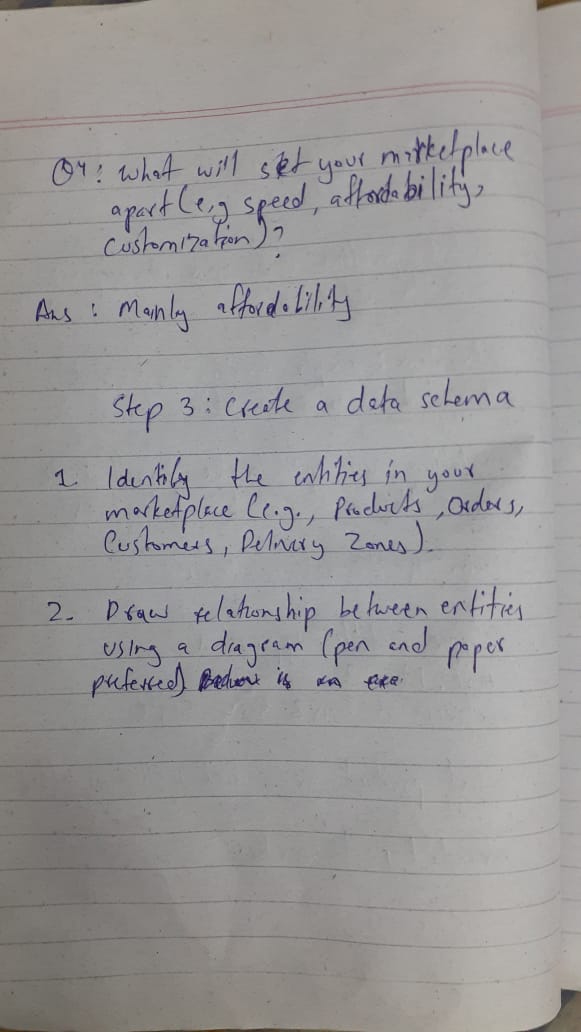 Q4: What will set your marketplace
apart (e.g speed, affordability,
Customization)?
Ans : Mainly affordability
Step 3 : Create a data schema
1. Identify the entities in your
marketplace (e.g., Products, Orders,
Customers, Delivery Zones).
2- Draw relationship between entities
using a diagram (pen and paper
preferred) is an